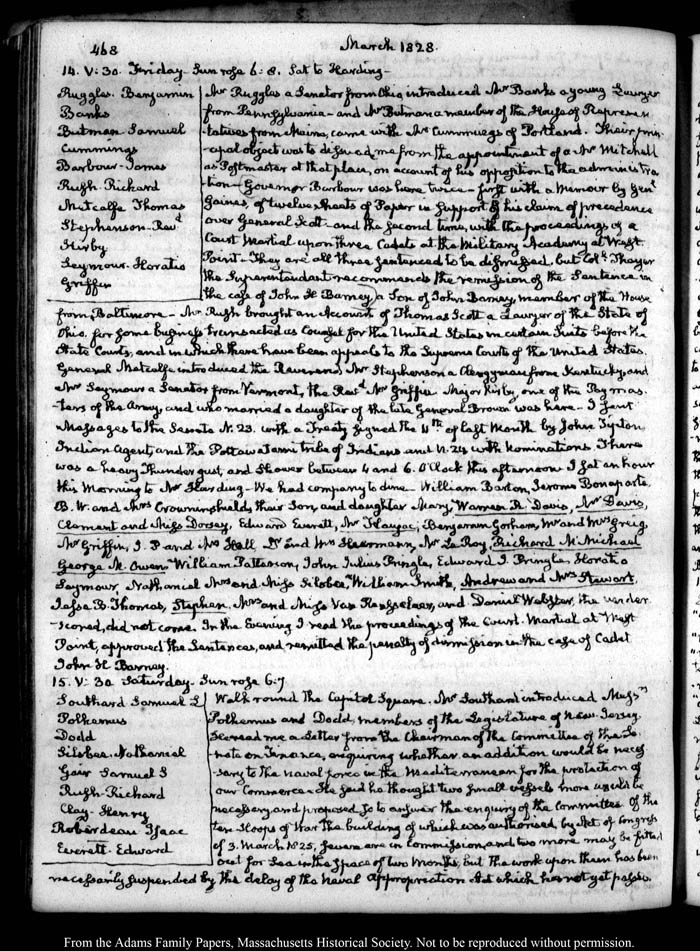 468
March 1828.
14. V: 30. Friday. Sun rose 6: 8. Sat to Harding-
Ruggles. Benjamin
Banks
Butman Samuel
Cummings
Barbour-James
Rush Richard
Metcalfe Thomas
Stephenson-Revd
Kirby
Seymour. Horatio
Griffin
Mr Ruggles a Senator from Ohio introduced Mr Banks a young Lawyer
from Pennsylvania- and Mr Butman a member of the House of Represen
tatives from Maine, came with Mr Cummings of Portland. Their prin
cipal object was to dissuade me from the appointment of a Mr Mitchell
as Postmaster at that place, on account of his opposition to the administra
tion- Governor Barbour was here twice- first with a Memoir by Genl
Gaines, of twelve sheets of Paper in support of his claim of precedence
over General Scott- and the second time, with the proceedings of a
Court Martial upon three Cadets at the Military Academy at West-
Point- They are all three sentenced to be dismissed, but Coll Thayer
the Superintendant recommends the remission of the Sentence in
the case of John H Barney, a Son of John Barney, member of the House
from Baltimore- Mr Rush brought an Account of Thomas Scott a Lawyer of the State of
Ohio, for some business transacted as Counsel for the United States in certain suits before the
State Courts, and in which there have been appeals to the Supreme Courts of the United States.
General Metcalfe introduced the Reverend Mr Stephenson a Clergyman from Kentucky, and
Mr Seymour a Senator from Vermont, the Revd Mr Griffin- Major Kirby, one of the Paymas-
-ters of the Army, and who married a daughter of the late General Brown was here- I sent
Messages to the Senate N. 23. with a Treaty signed the 11th of last Month by John Tipton
Indian Agent, and the Pottawatami tribe of Indians and N. 24 with Nominations There
was a heavy Thunder gust, and Shower between 4 and 6. O'Clock this afternoon I sat an hour
this Morning to Mr Harding- We had company to dine- William Barton, Jerome Bonaparte,
B. W. and Mrs Crowninshield, their Son, and daughter Mary, Warren R. Davis, Mr Davis,
Clement and Miss Dorsey, Edward Everett, Mr Benjamin Gorham, Mr and Mrs Greig.
Mr Griffin, I. P and Mrs Hall Dr and Mrs Heermann, Mr Le Roy, Richard McMichael
George M. Owen- William Patterson, John Julius Pringle, Edward I. Pringle, Horatio
Seymour, Nathaniel Mrs and Miss Silsbee, William Smith, Andrew and Mrs Stewart,
Jesse B. Thomas, Stephen, Mrs and Miss Van Rensselaer, and Daniel Webster, the under
-scored, did not come. In the Evening I read the proceedings of the Court. Martial at West
Point, approved the Sentences, and remitted the penalty of dismission in the case of Cadet
John H Barney.
15. V: 30 Saturday. Sun rose 6.7.
Southard Samuel L
Polhemus
Dodd
Silsbee. Nathaniel
Gair Samuel S
Rush-Richard
Clay-Henry
Roberdeau Isaac
Everett-Edward
Walk round the Capitol Square. Mr Southard introduced Messrs
Polhemus and Dodd, members of the Legislature of New Jersey.
He read me a Letter from the Chairman of the Committee of the Se-
nate on Finance, enquiring whether an addition would be neces
sary to the naval force in the Mediterranean for the protection of
our Commerce. He said he thought two small vessels more would be
necessary and proposed so to answer the enquiry of the Committee Of the
ten Sloops of War the building of which was authorised by Act of Congress
of 3. March 1825, seven are in Commission, and two more may be fitted
out for Sea in the space of two Months, but the work upon them has been
necessarily suspended by the delay of the Naval Appropriation Act which has not yet passed.
From the Adams Family Papers, Massachusetts Historical Society. Not to be reproduced without permission.